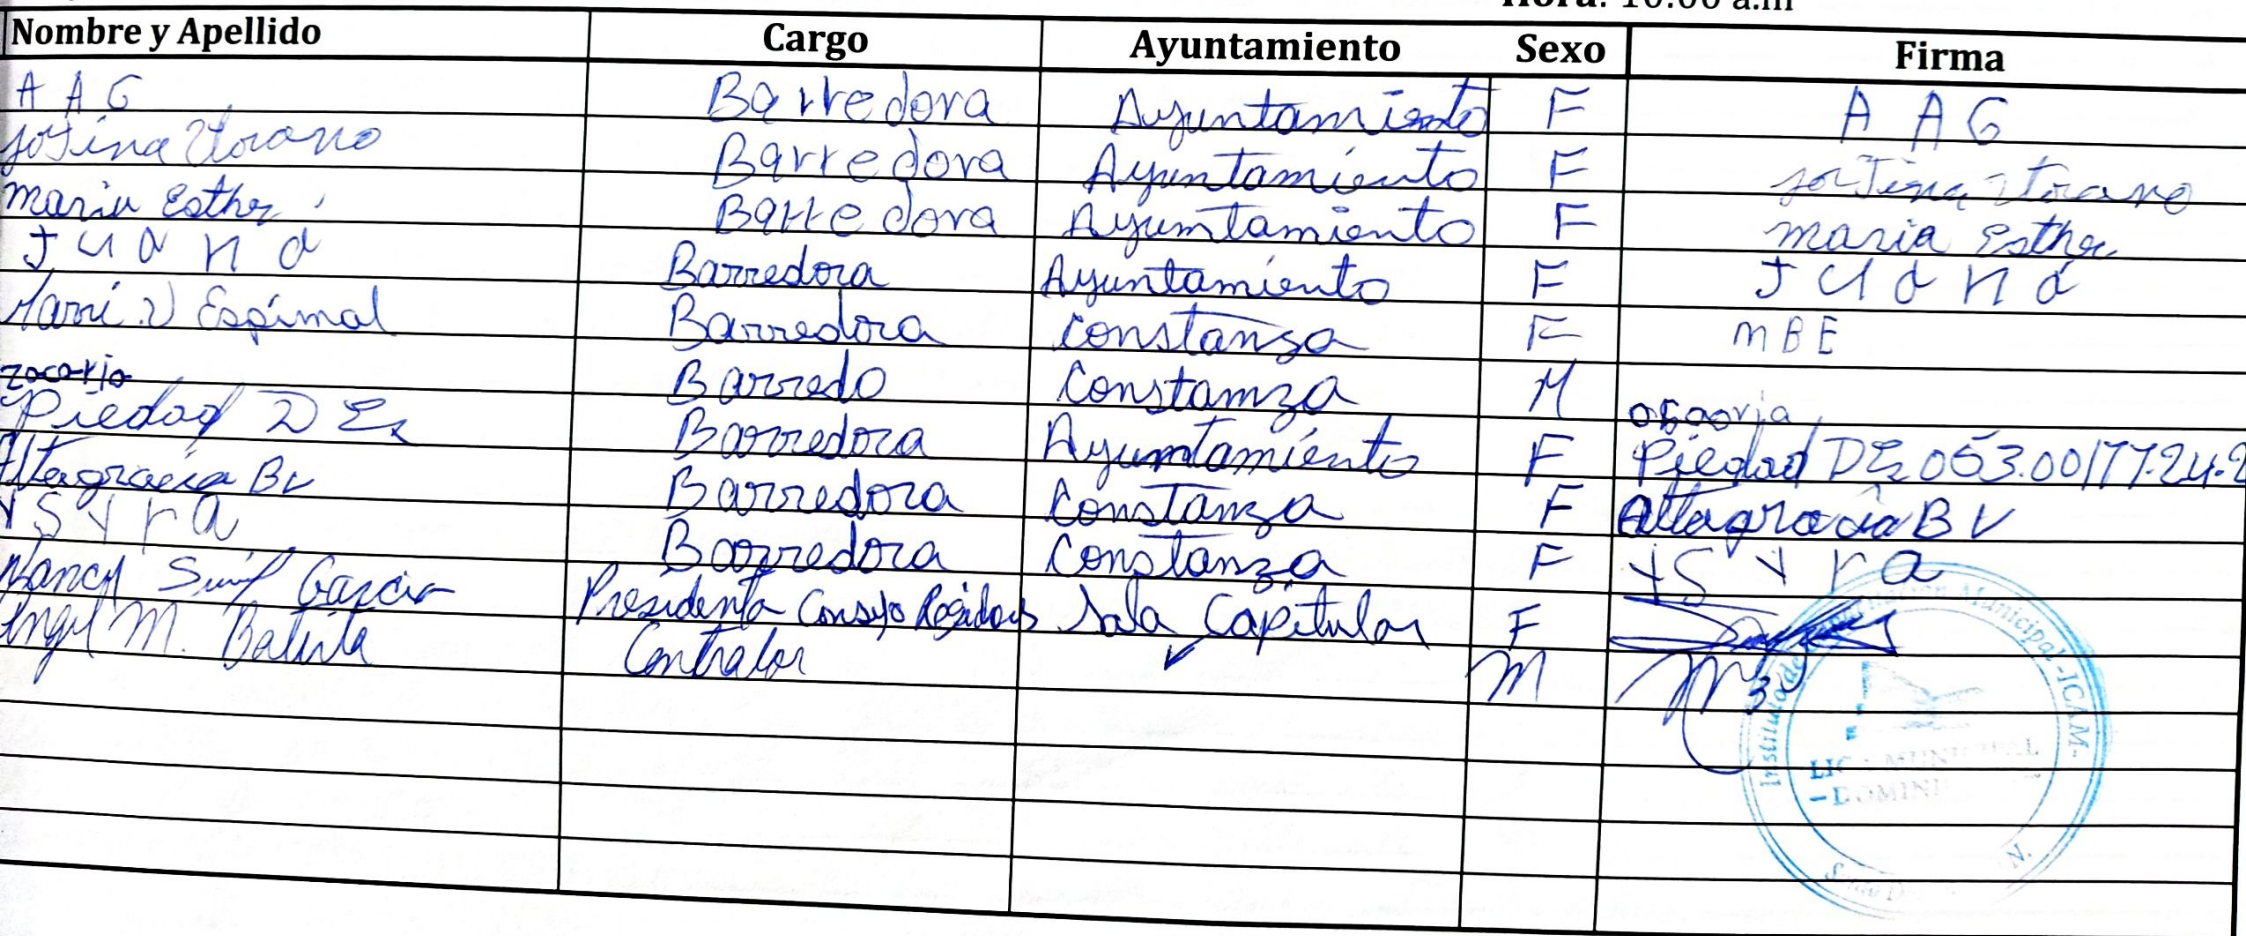 Hora: 10:00 a.m
Nombre y Apellido Cargo Ayuntamiento Sexo Firma
A A G Barredora Ayuntamiento F A A G
Barredora Ayuntamiento F
Maria Esther Barredora Ayuntamiento F Maria Esther
Juana Barredora Ayuntamiento F Juana
Espimal Barredora Constanza F MBE
zacario Barredo Constamza M
Piedad D Barredora Ayumtamiento F Piedad D
Altagracia BV Barredora Constanza F Altagracia B V
ysyra Barredora Constanza F ysyra
Nancy Garcia Presidenta Consejo Regidores Sala Capitular F
Angel M. Batista Contralor ✓ M
Municipal -ICAM-
MUNICIPAL